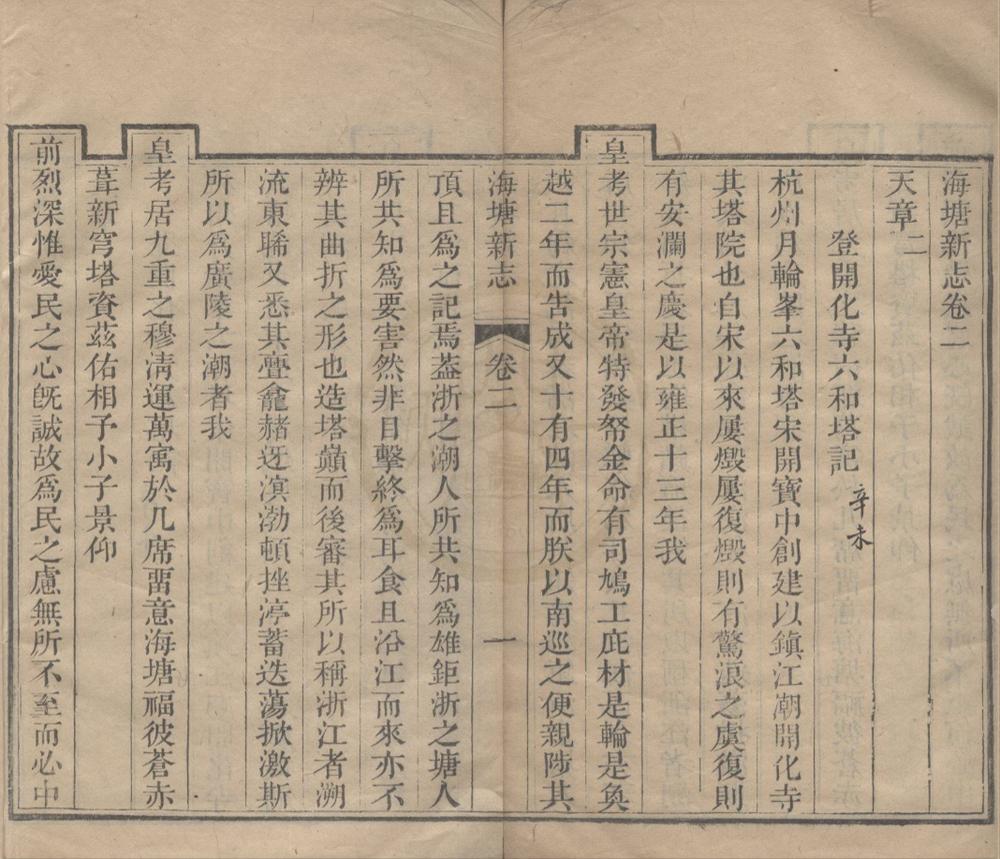 海塘新志卷二
天章二
登開化寺六和塔記辛未
杭州月輪峯六和塔宋開寶中創建以鎮江潮開化寺
其塔院也自宋以來屢燬屢復燬則有驚浪之虞復則
有安瀾之慶是以雍正十三年我
皇考世宗憲皇帝特發帑金命有司鳩工庀材是輪是奐
越二年而告成又十有四年而朕以南巡之便親陟其
海塘新志 卷二 一
頂且爲之記焉蓋浙之潮人所共知爲雄鉅浙之塘人
所共知爲要害然非目擊終爲耳食且沿江而來亦不
辨其曲折之形也造塔巔而後審其所以稱浙江者溯
流東睎又悉其亹龕赭迓滇渤頓挫渟蓄迭蕩掀激斯
所以爲廣陵之潮者我
皇考居九重之穆清運萬寓於几席畱意海塘福彼蒼赤
葺新穹塔資茲佑相予小子景仰
前烈深惟愛民之心旣誠故爲民之慮無所不至而必中